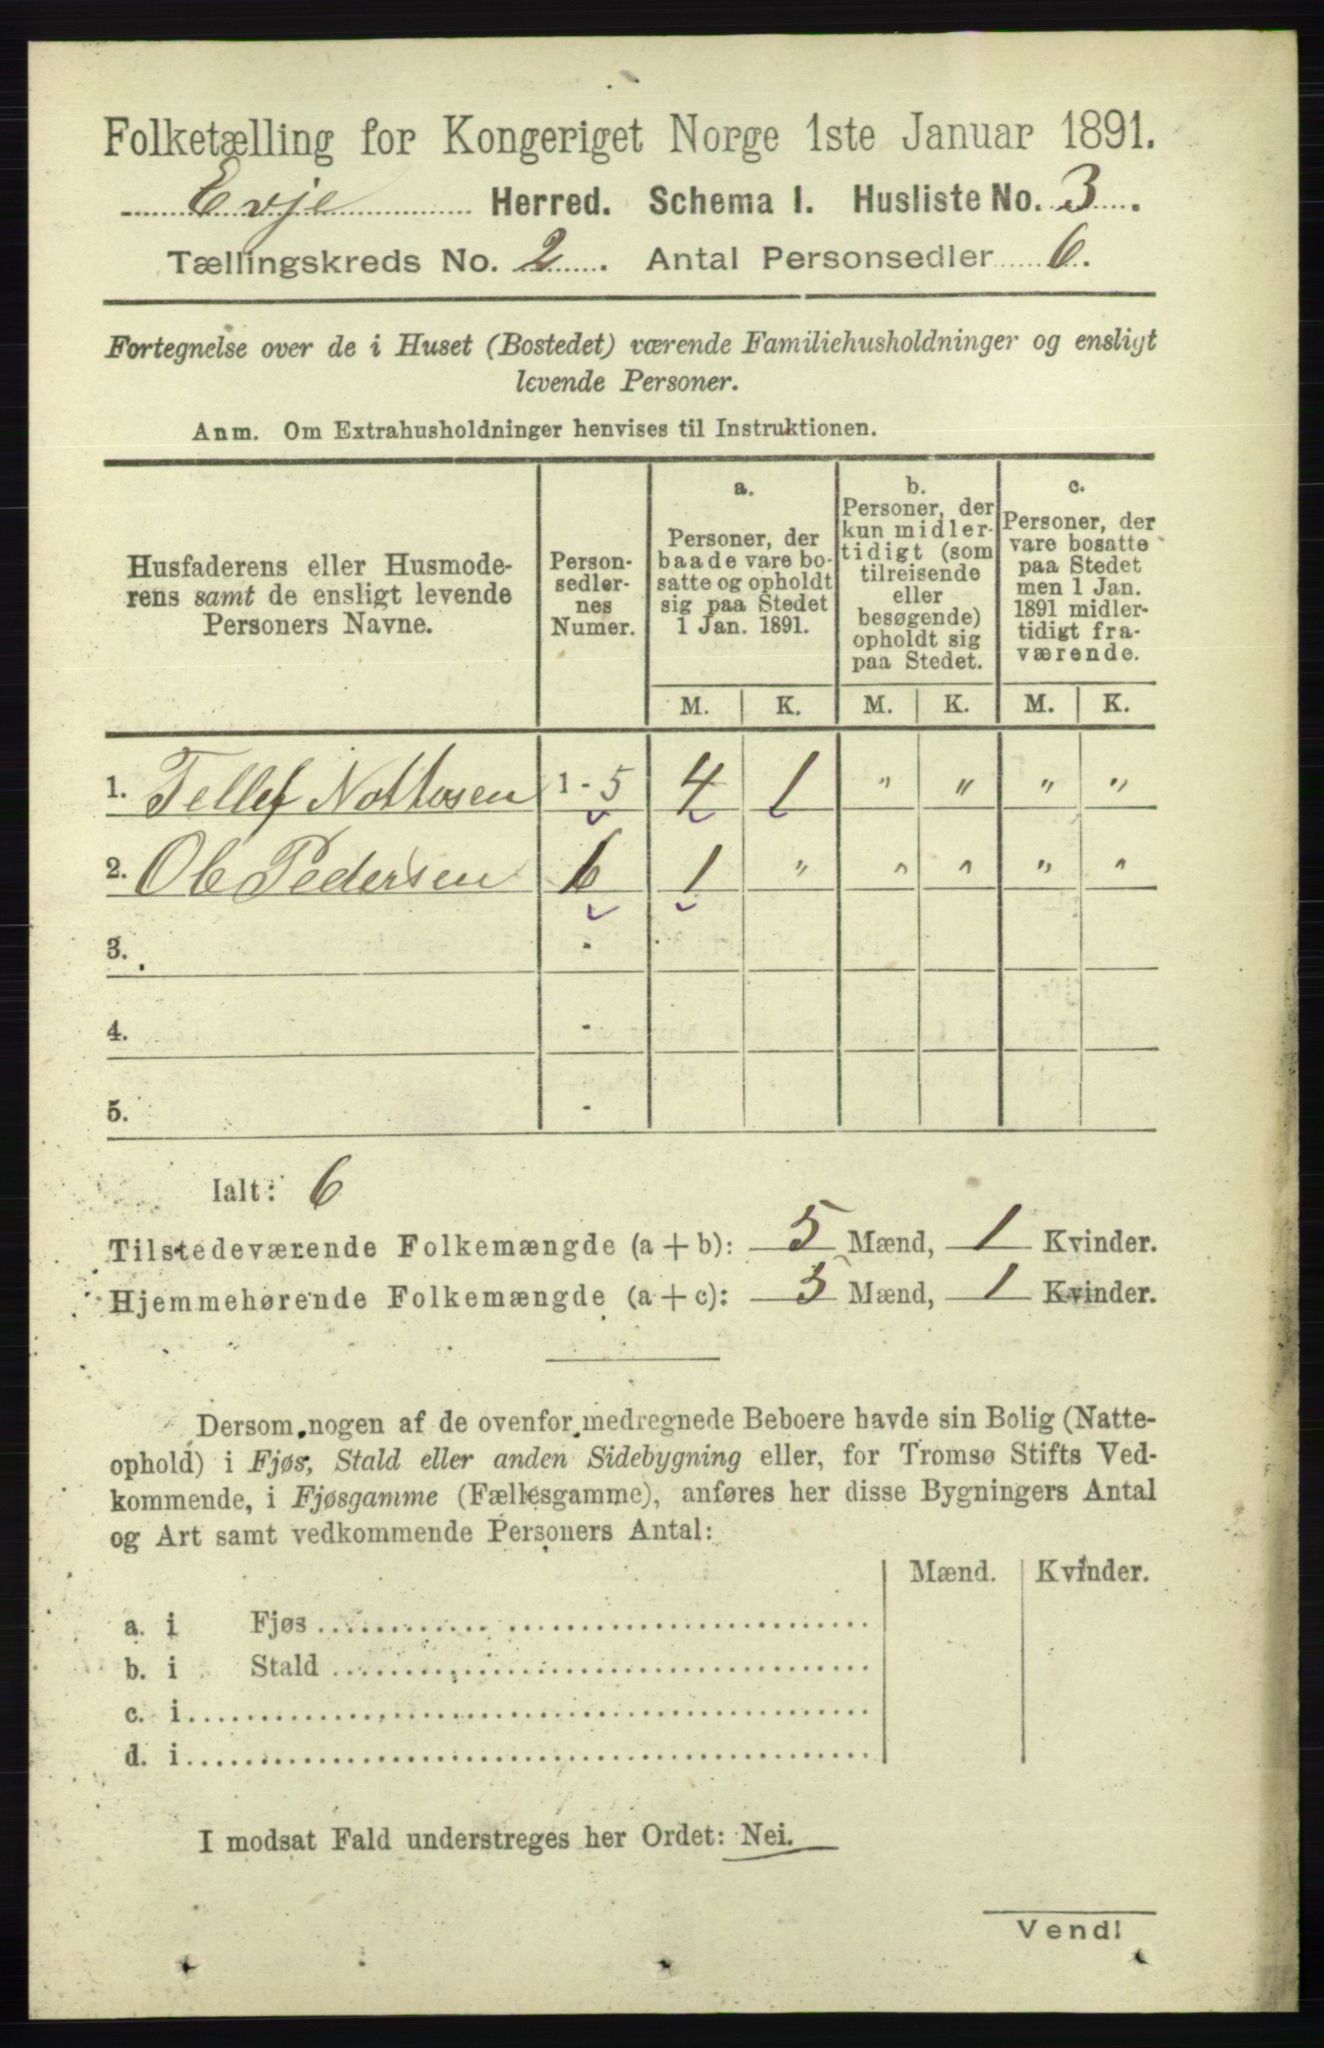 Folketælling for Kongeriget Norge 1ste Januar 1891.
Evje Herred. Schema I. Husliste No. 3.
Tællingskreds No. 2. Antal Personsedler 6.
Fortegnelse over de i Huset (Bostedet) værende Familiehusholdninger og ensligt
levende Personer.
Anm. Om Extrahusholdninger henvises til Instruktionen.
Husfaderens eller Husmode-
rens samt de ensligt levende
Personers Navne.
Person-
sedler-
nes
Numer.
a.
Personer, der
baade vare bo-
satte og opholdt
sig paa Stedet
1 Jan. 1891.
b.
Personer, der
kun midler-
tidigt (som
tilreisende
eller
besøgende)
opholdt sig
paa Stedet.
c.
Personer, der
vare bosatte
paa Stedet
men 1 Jan.
1891 midler-
tidigt fra-
værende.
M. K. M. K. M. K.
1. Tellef 1 - 5 4 1 " " " "
2. Ole Pedersen 6 1 " " " " "
3. -
4. -
5. -
Ialt: 6
Tilstedeværende Folkemængde (a + b): 5 Mænd, 1 Kvinder.
Hjemmehørende Folkemængde (a + c): 5 Mænd, 1 Kvinder.
Dersom nogen af de ovenfor medregnede Beboere havde sin Bolig (Natte-
ophold) i Fjøs, Stald eller anden Sidebygning eller, for Tromsø Stifts Ved-
kommende, i Fjøsgamme (Fællesgamme), anføres her disse Bygningers Antal
og Art samt vedkommende Personers Antal:
Mænd. Kvinder.
a. i Fjøs
b. i Stald
c. i
d. i
I modsat Fald understreges her Ordet: Nei.
Vend!